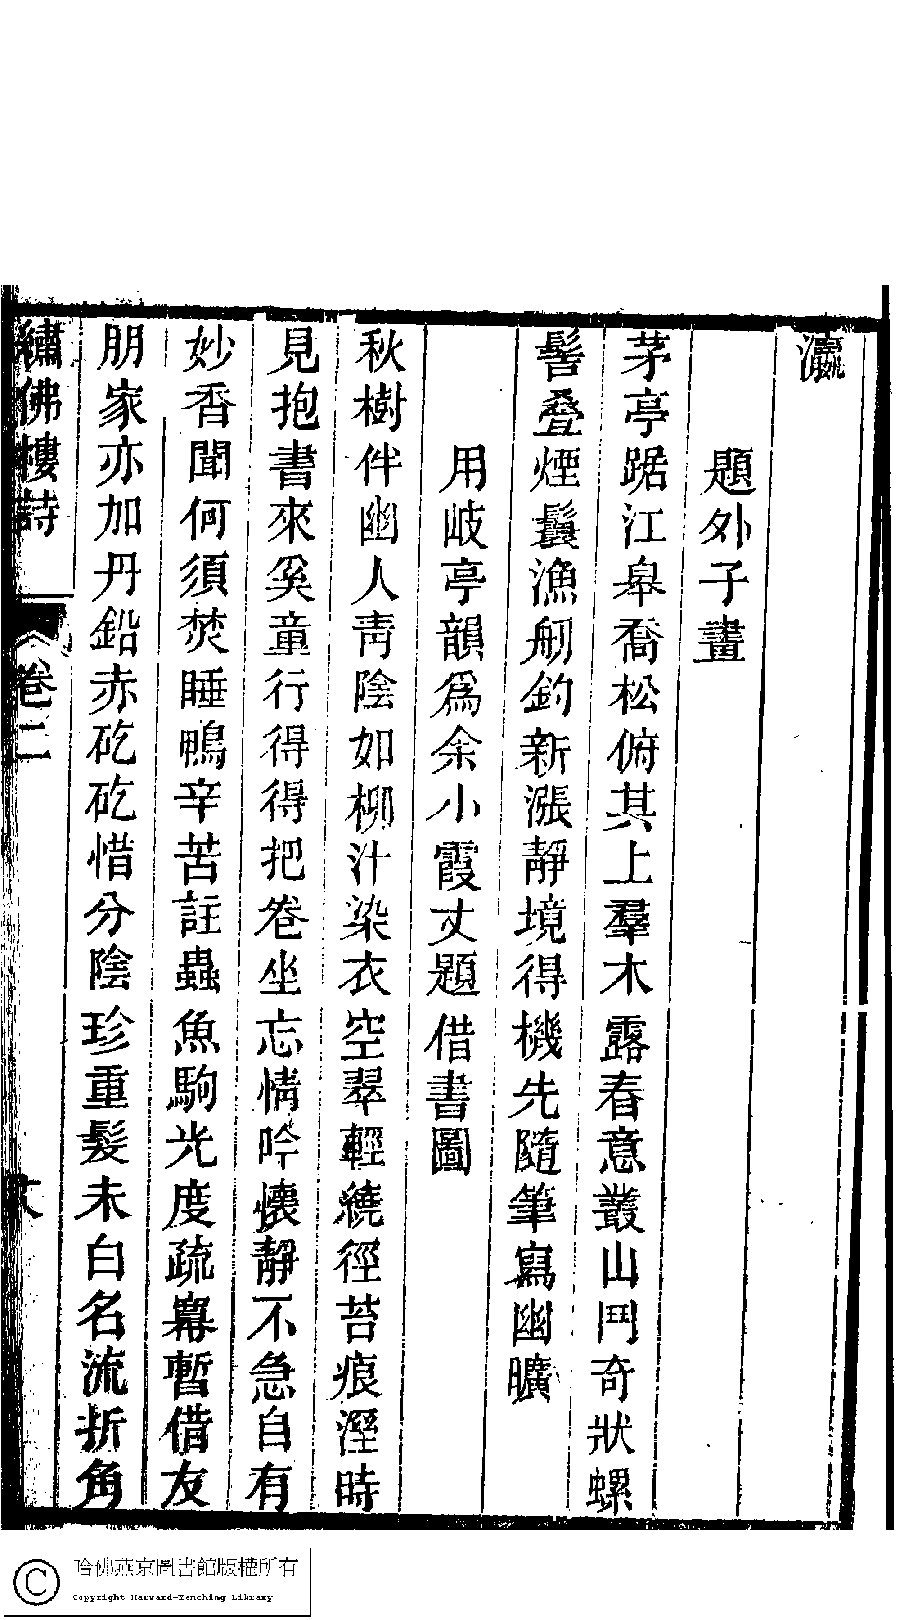 瀛
題外子畫
茅亭踞江皋喬松俯其上羣木露春意叢山鬥奇狀螺
髻叠煙鬟漁舠釣新漲靜境得機先隨筆寫幽曠
用岐亭韻爲余小霞丈題借書圖
秋樹伴幽人靑陰如柳汁染衣空翠輕繞徑苔痕溼時
見抱書來奚童行得得把卷坐忘情吟懷靜不急自有
妙香聞何須焚睡鴨辛苦註蟲魚駒光度疏冪暫借友
朋家亦加丹鉛赤矻矻惜分陰珍重髮未白名流折角
繡佛樓詩
卷二
哈佛燕京圖書館版權所有
Copyright Harvard-Yenching Library